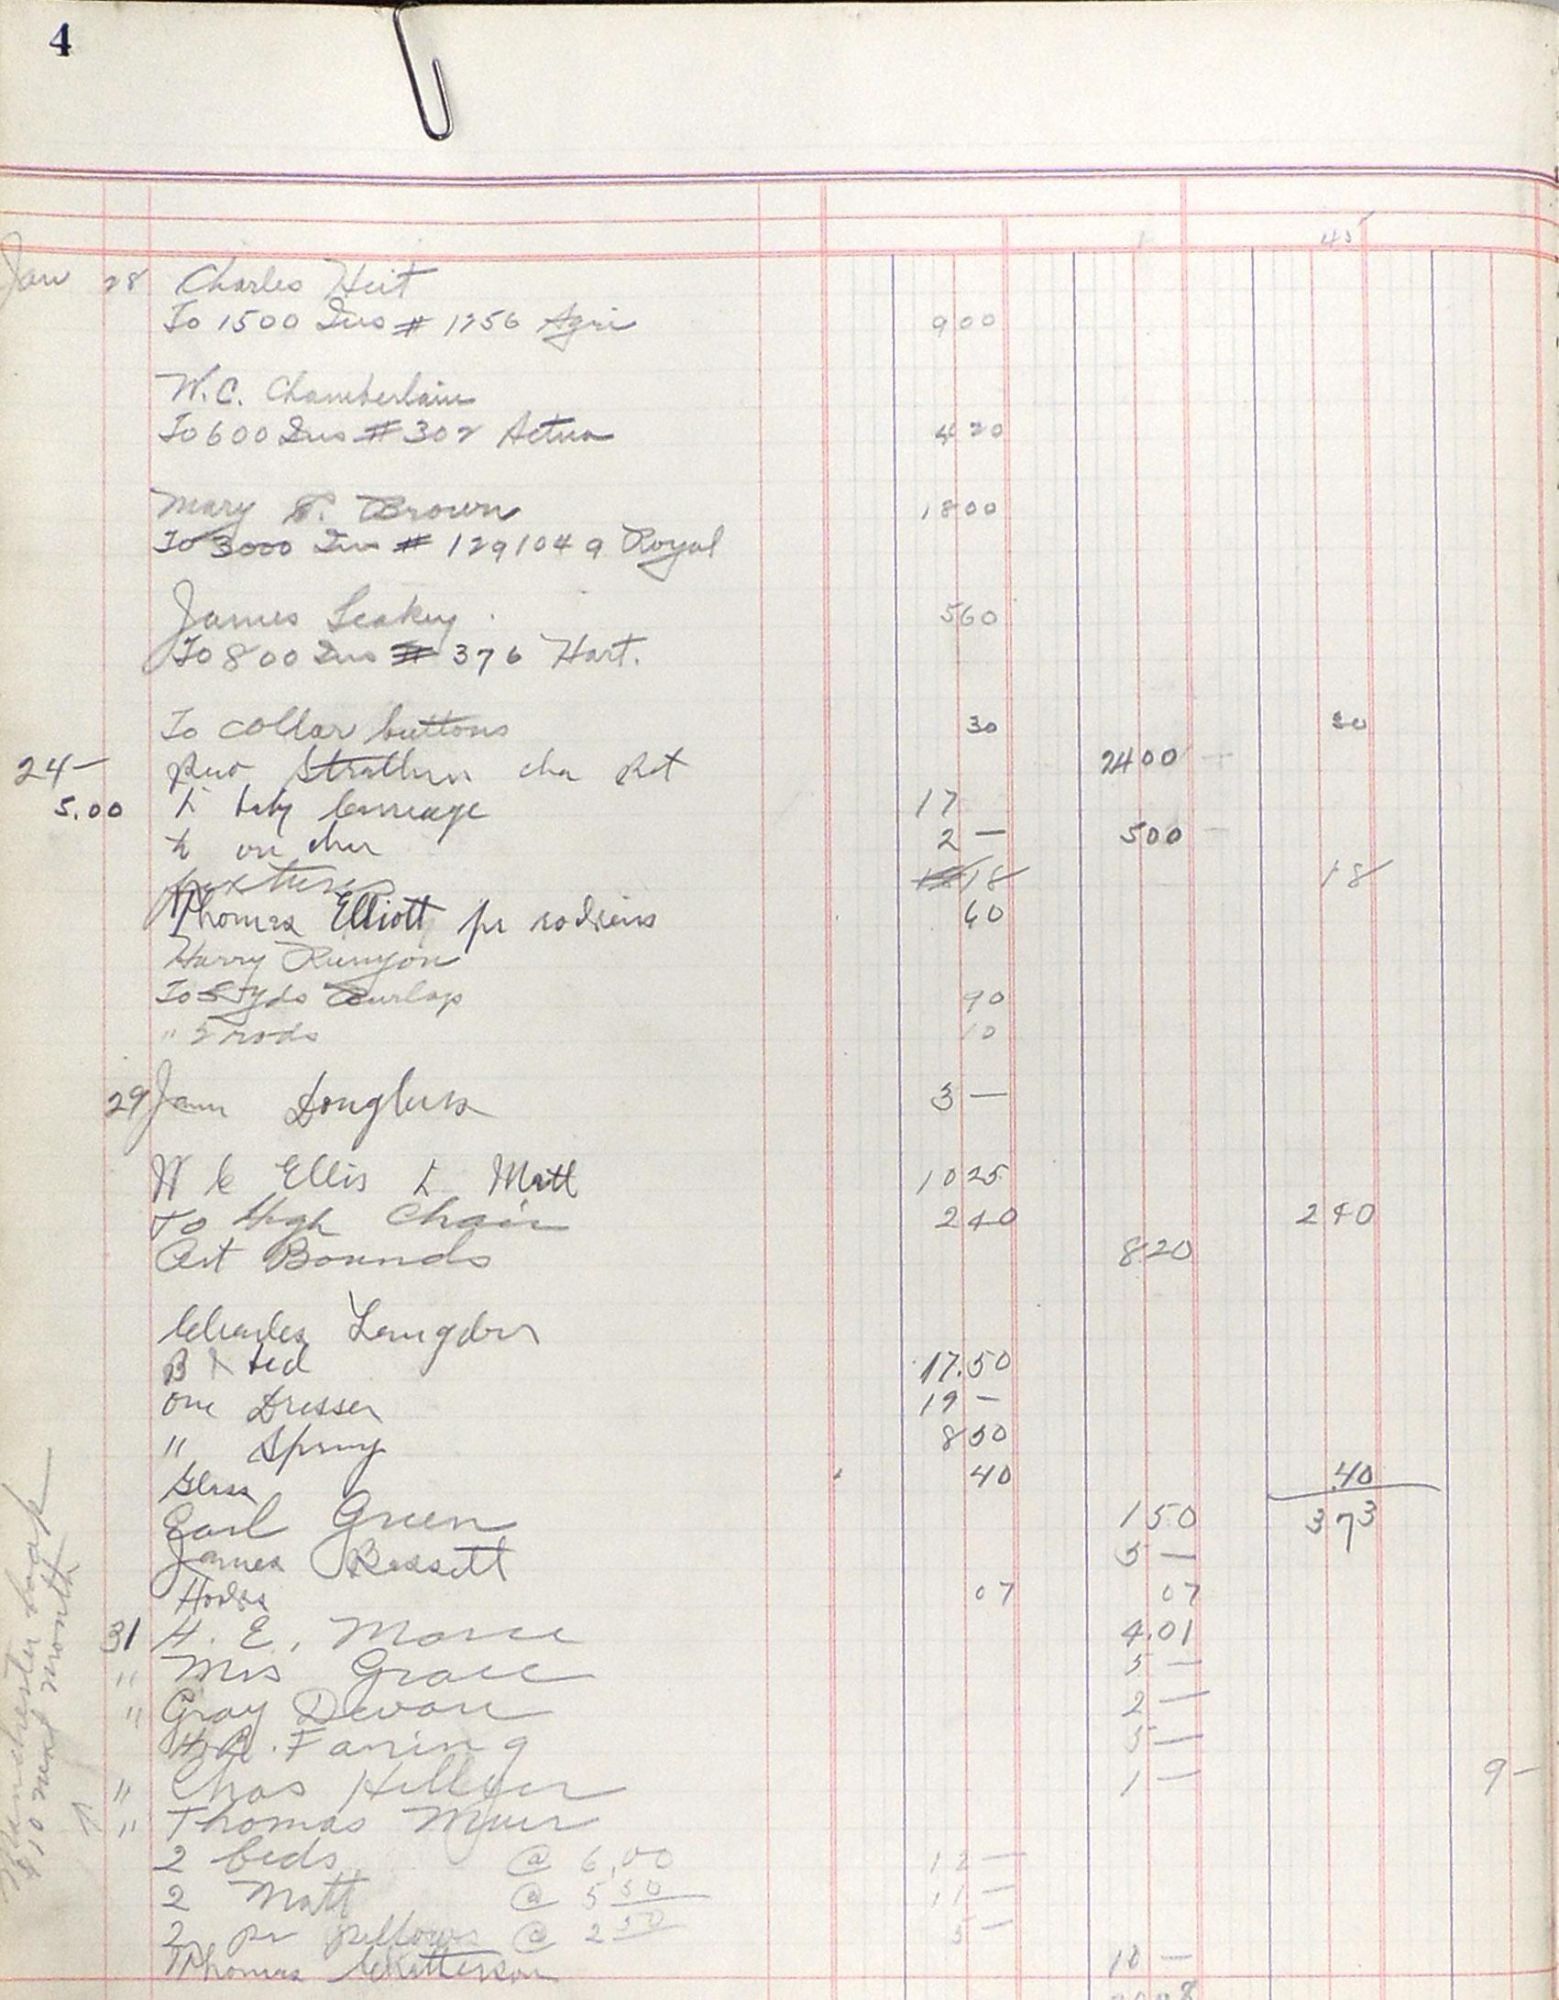 4
45
Jan 28 Charles Heit
To 1500 Ins # 1256 Agri 900
W.C. Chamberlain
To 600 Ins # 302 Aetna 420
Mary Brown 1800
To 3000 Ins # 1291049 Royal
James Leakey 560
To 800 Ins # 376 Hart.
To collar buttons 30 30
24 — 2400 —
5.00 baby carriage 17
on 2 — 500 —
fixtures 18 18
Thomas Elliott pr 60
Harry Runyon
To yds Burlap 90
" 2 rods 10
29 Douglass 3 —
W C Ellis Matt 1025
To High Chair 240 240
Art Bounds 820
Charles Langdon
B bed 17.50
one Dresser 19 —
" Spring 850
Glass 40 .40
Earl Green 150 373
James Bassett 5 —
07 07
31 H. E. Morce 4.01
" Mrs Grace 5 —
" Gray Devore 2 —
Faning 5 —
" Chas Hillyer 1 — 9 —
" Thomas Muir
2 beds @ 6.00 12 —
2 Matt @ 5 50 11 —
2 pr pillows @ 2 50 5 —
Thomas 10 —
Manchester
$10 next month